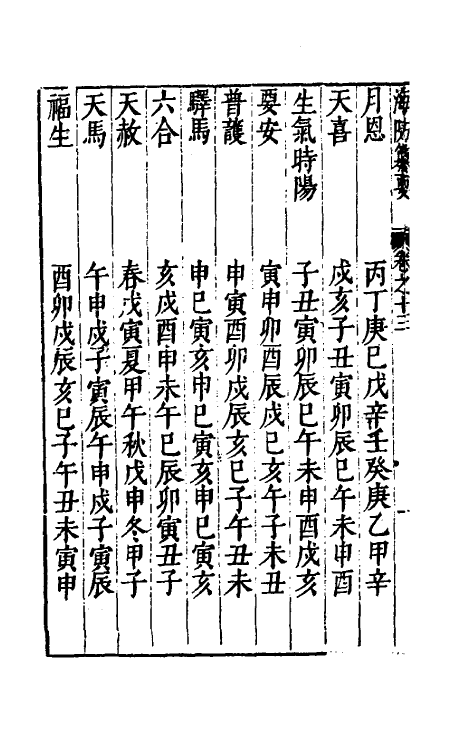 海防纂要 卷之十三
月恩 丙丁庚巳戊辛壬癸庚乙甲辛
天喜 戌亥子丑寅卯辰巳午未申酉
生氣時陽 子丑寅卯辰巳午未申酉戌亥
要安 寅申卯酉辰戌巳亥午子未丑
普護 申寅酉卯戌辰亥巳子午丑未
驛馬 申巳寅亥申巳寅亥申巳寅亥
六合 亥戌酉申未午巳辰卯寅丑子
天赦 春戊寅夏甲午秋戊申冬甲子
天馬 午申戌子寅辰午申戌子寅辰
福生 酉卯戌辰亥巳子午丑未寅申